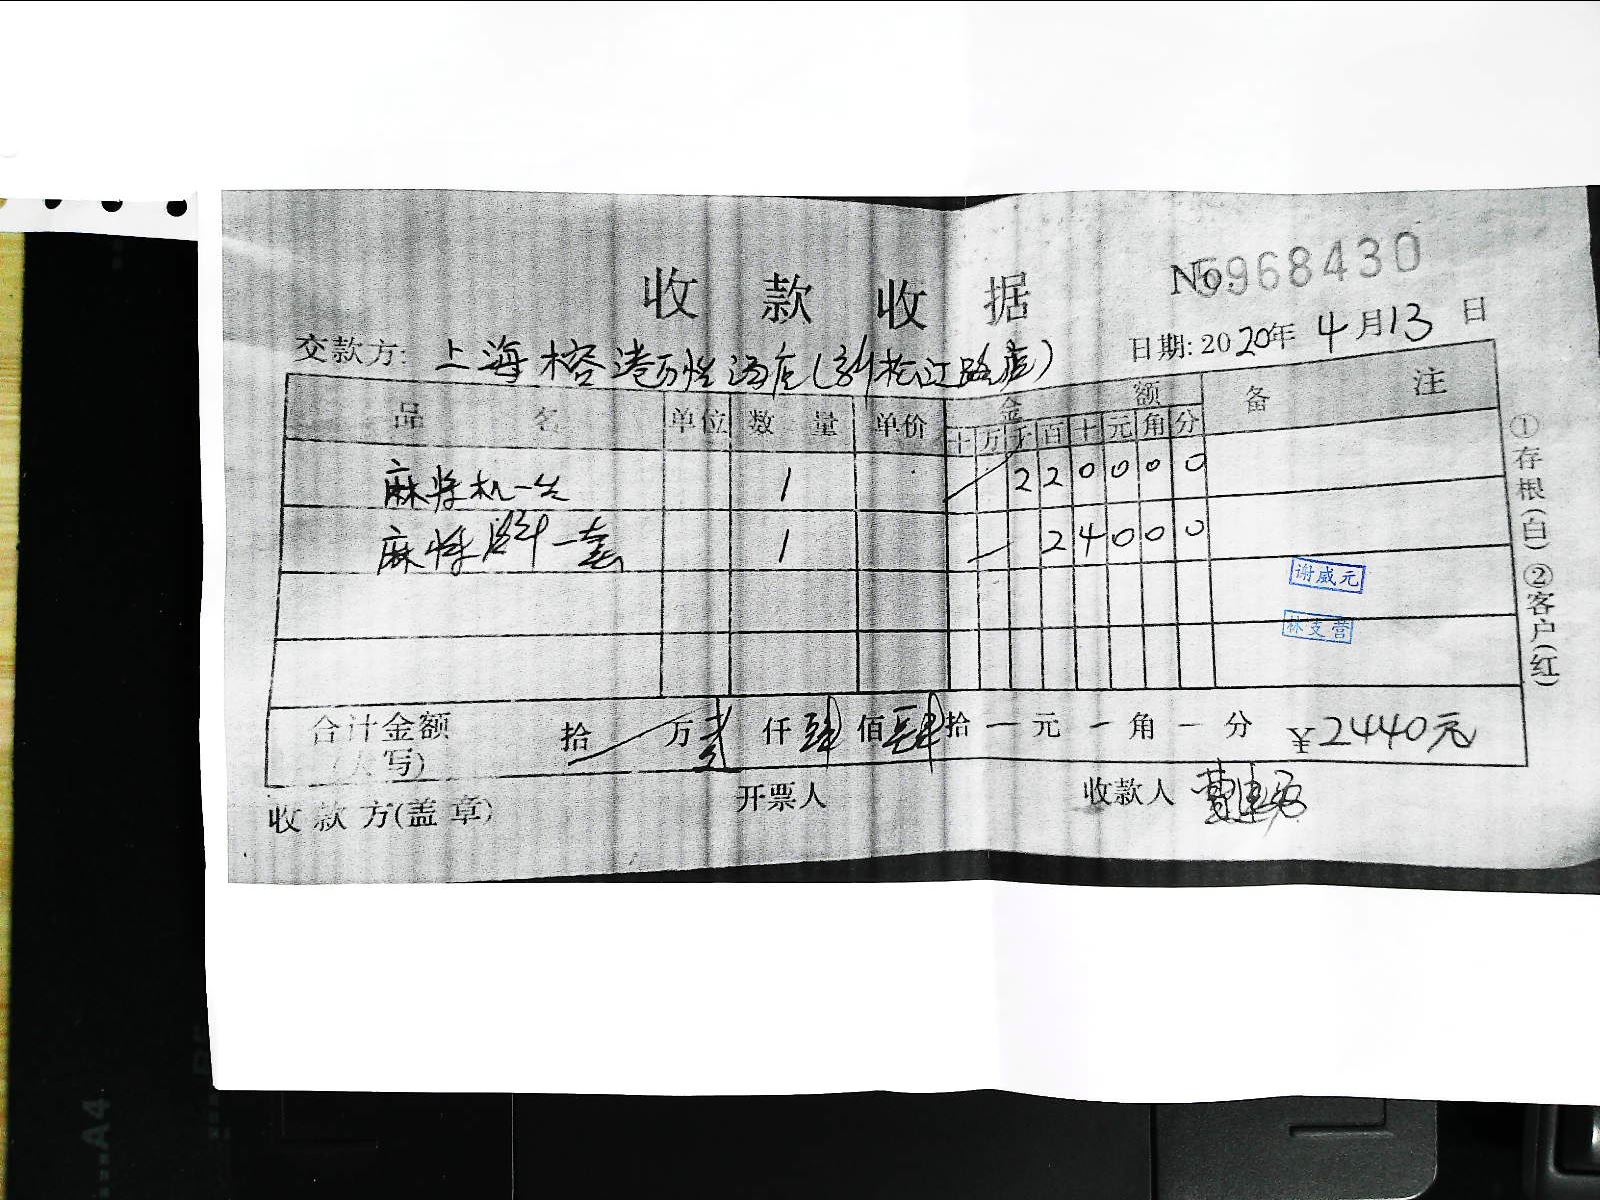 收款收据
No.5968430
交款方: 上海榕港万怡酒店(新松江路店)
日期: 2020年4月13日
品名 单位 数量 单价 金额 备注
十 万 千 百 十 元 角 分
麻将机一台 1 2 2 0 0 0 0
麻将牌一套 1 2 4 0 0 0
谢威元
林支营
合计金额(大写) 拾 万 贰 仟 肆 佰 肆 拾 一 元 一 角 一 分 ¥2440元
收款方(盖章) 开票人 收款人
①存根(白)②客户(红)
A4